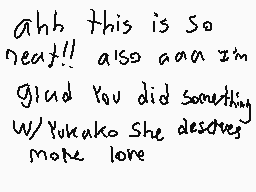 ahh this is so
neat!! also aaa I'm
glad You did something
w/ Yukako she deserves
more love